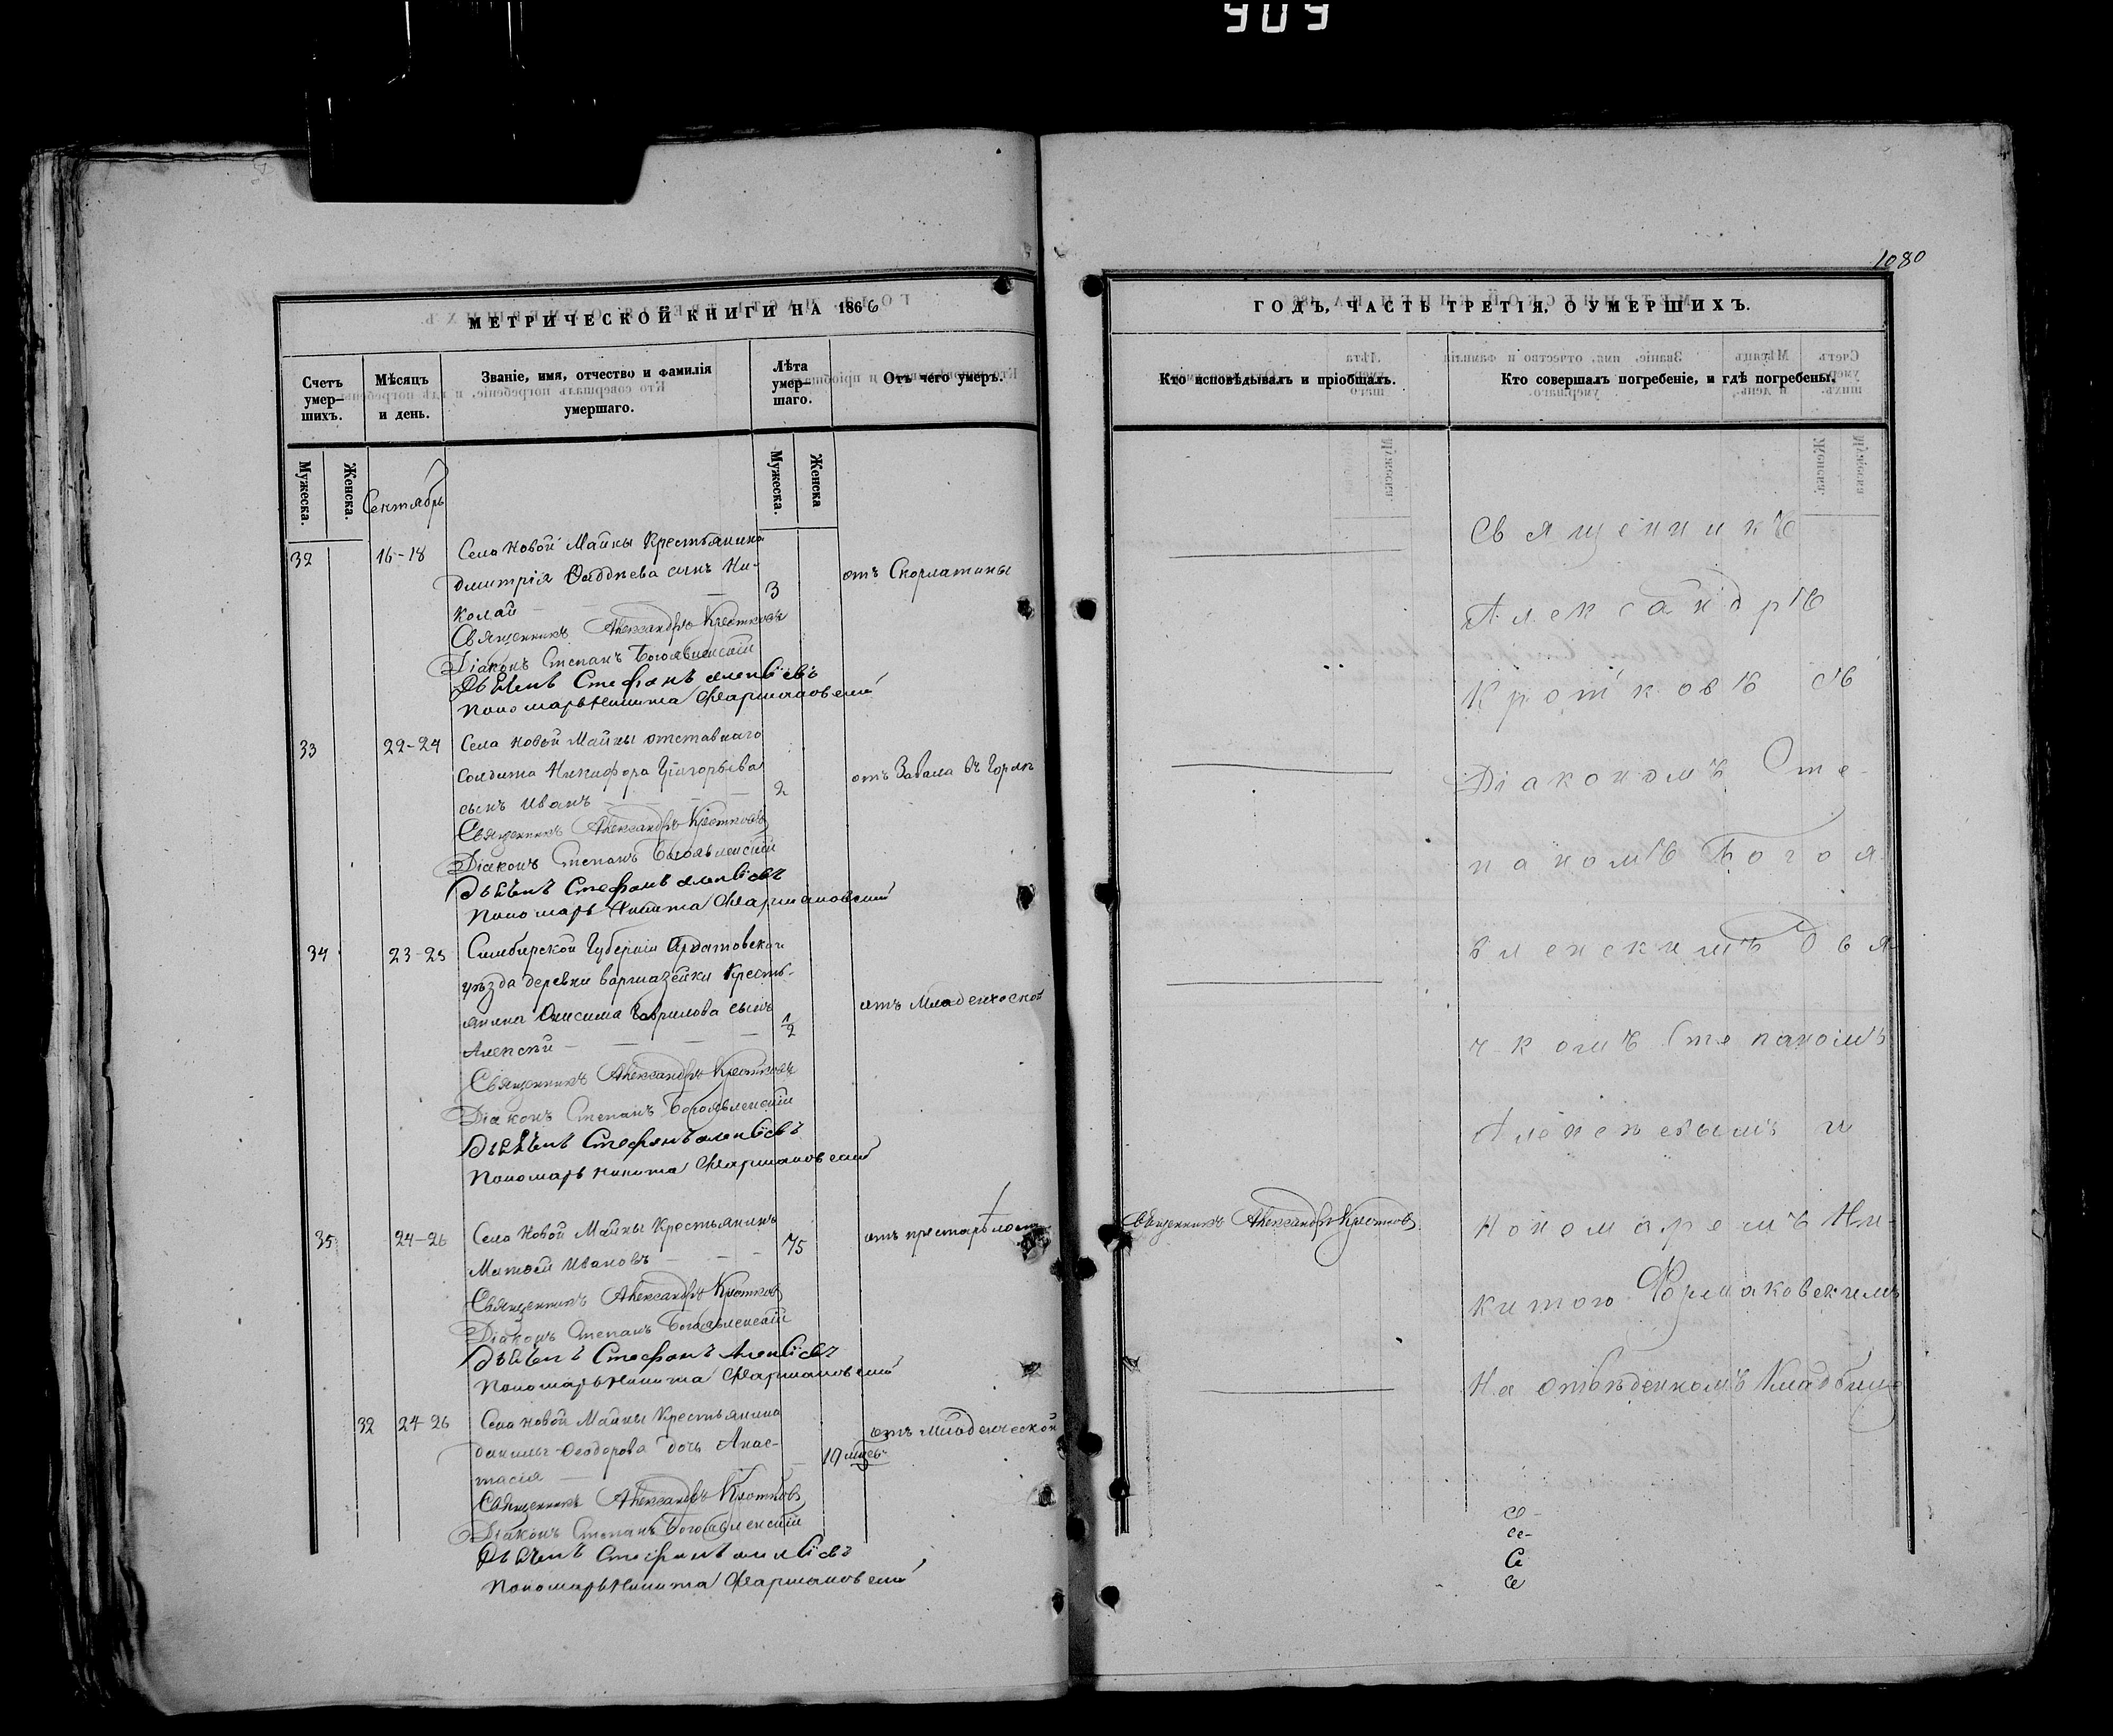 909
1080
МЕТРИЧЕСКОЙ КНИГИ НА 1866
Счетъ умер-
шихъ.
Мѣсяцъ
и день.
Званіе, имя, отчество и фамилія
умершаго.
Лѣта
умер-
шаго.
Отъ чего умеръ.
Мужеска.
Женска.
Мужеска.
Женска
Сентябрь
32
16-18
Села Новой Майны Крестьянина
Дмитрія Фаддѣева сынъ Ни-
колай
3
отъ Скорлатины
Священникъ Александръ Кротковъ
Діаконъ Степанъ Богоявленскій
Дьячекъ Стефанъ Алексѣевъ
Пономарь Никита Фармаковскій
33
22-24
Села Новой Майны отставнаго
солдата Никифора Григорьева
сынъ Иванъ
2
отъ Завала въ Горлѣ
Священникъ Александръ Кротковъ
Діаконъ Степанъ Богоявленскій
Дьячекъ Стефанъ Алексѣевъ
Пономарь Никита Фармаковскій
34
23-25
Симбирской Губерніи Ардатовскаго
уѣзда деревни Кресть-
янина Онисима Гаврилова сынъ
Алексѣй
1/2
отъ Младенческой
Священникъ Александръ Кротковъ
Діаконъ Степанъ Богоявленскій
Дьячекъ Стефанъ Алексѣевъ
Пономарь Никита Фармаковскій
35
24-26
Села Новой Майны Крестьянинъ
Матвей Ивановъ
75
отъ престарѣлости
Священникъ Александръ Кротковъ
Діаконъ Степанъ Богоявленскій
Дьячекъ Стефанъ Алексѣевъ
Пономарь Никита Фармаковскій
32
24-26
Села Новой Майны Крестьянина
Данилы Ѳеодорова дочь Анас-
тасія
10 мѣсе.
отъ младенческой
Священникъ Александръ Кротковъ
Діаконъ Степанъ Богоявленскій
Дьячекъ Стефанъ Алексѣевъ
Пономарь Никита Фармаковскій
ГОДЪ, ЧАСТЬ ТРЕТІЯ, О УМЕРШИХЪ.
Кто исповѣдывалъ и пріобщалъ.
Кто совершалъ погребеніе, и гдѣ погребены.
Священникъ Александръ Кротковъ
Священникъ
Александръ
Кротковъ съ
Діакономъ Сте-
паномъ Богоя-
вленскимъ Дья-
чкомъ Степаномъ
Алексѣевымъ и
Пономаремъ Ни-
китою Фармаковскимъ
На отвѣденномъ Кладбищѣ